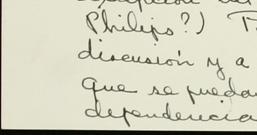 Philips?)
discusión y a
que se puedan
dependencia